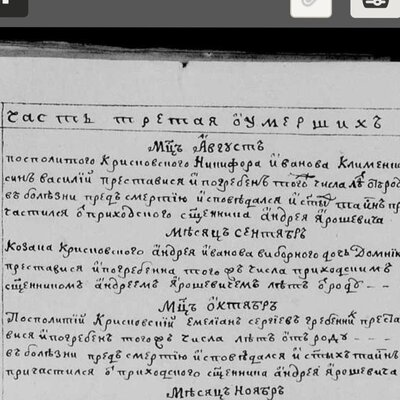 часть третая ѡумершихъ
Мц҃ъ Августъ
посполитого Крисновского Никифора Иванова Клименко
синъ василій преставися и погребенъ тогѡ числа лѣ ѿ род
въ болѣзни предъ смертію исповѣдался и ст҃ы таинъ пр
частился ѿ приходского сщ҃енника андрея Ярошевича
Мѣсяцъ Сентябръ
Козака Крисновского андрея иванова виборного дочь Домнік
преставися и погребенна того ж числа приходскимъ
сщ҃енникомъ андреемъ Ярошевичемъ лѣтъ ѿ роду - - -
Мц҃ъ Октябръ
Посполитій Крисновскій Емеліанъ сергіевъ гребенник преста
вися и погребенъ того ж числа лѣтъ ѿ роду - - -
въ болѣзни предъ смертію исповѣдался и ст҃ыхъ таинъ
причастился ѿ приходского сщ҃енника андрея Ярошевича
Мѣсяцъ Ноябръ